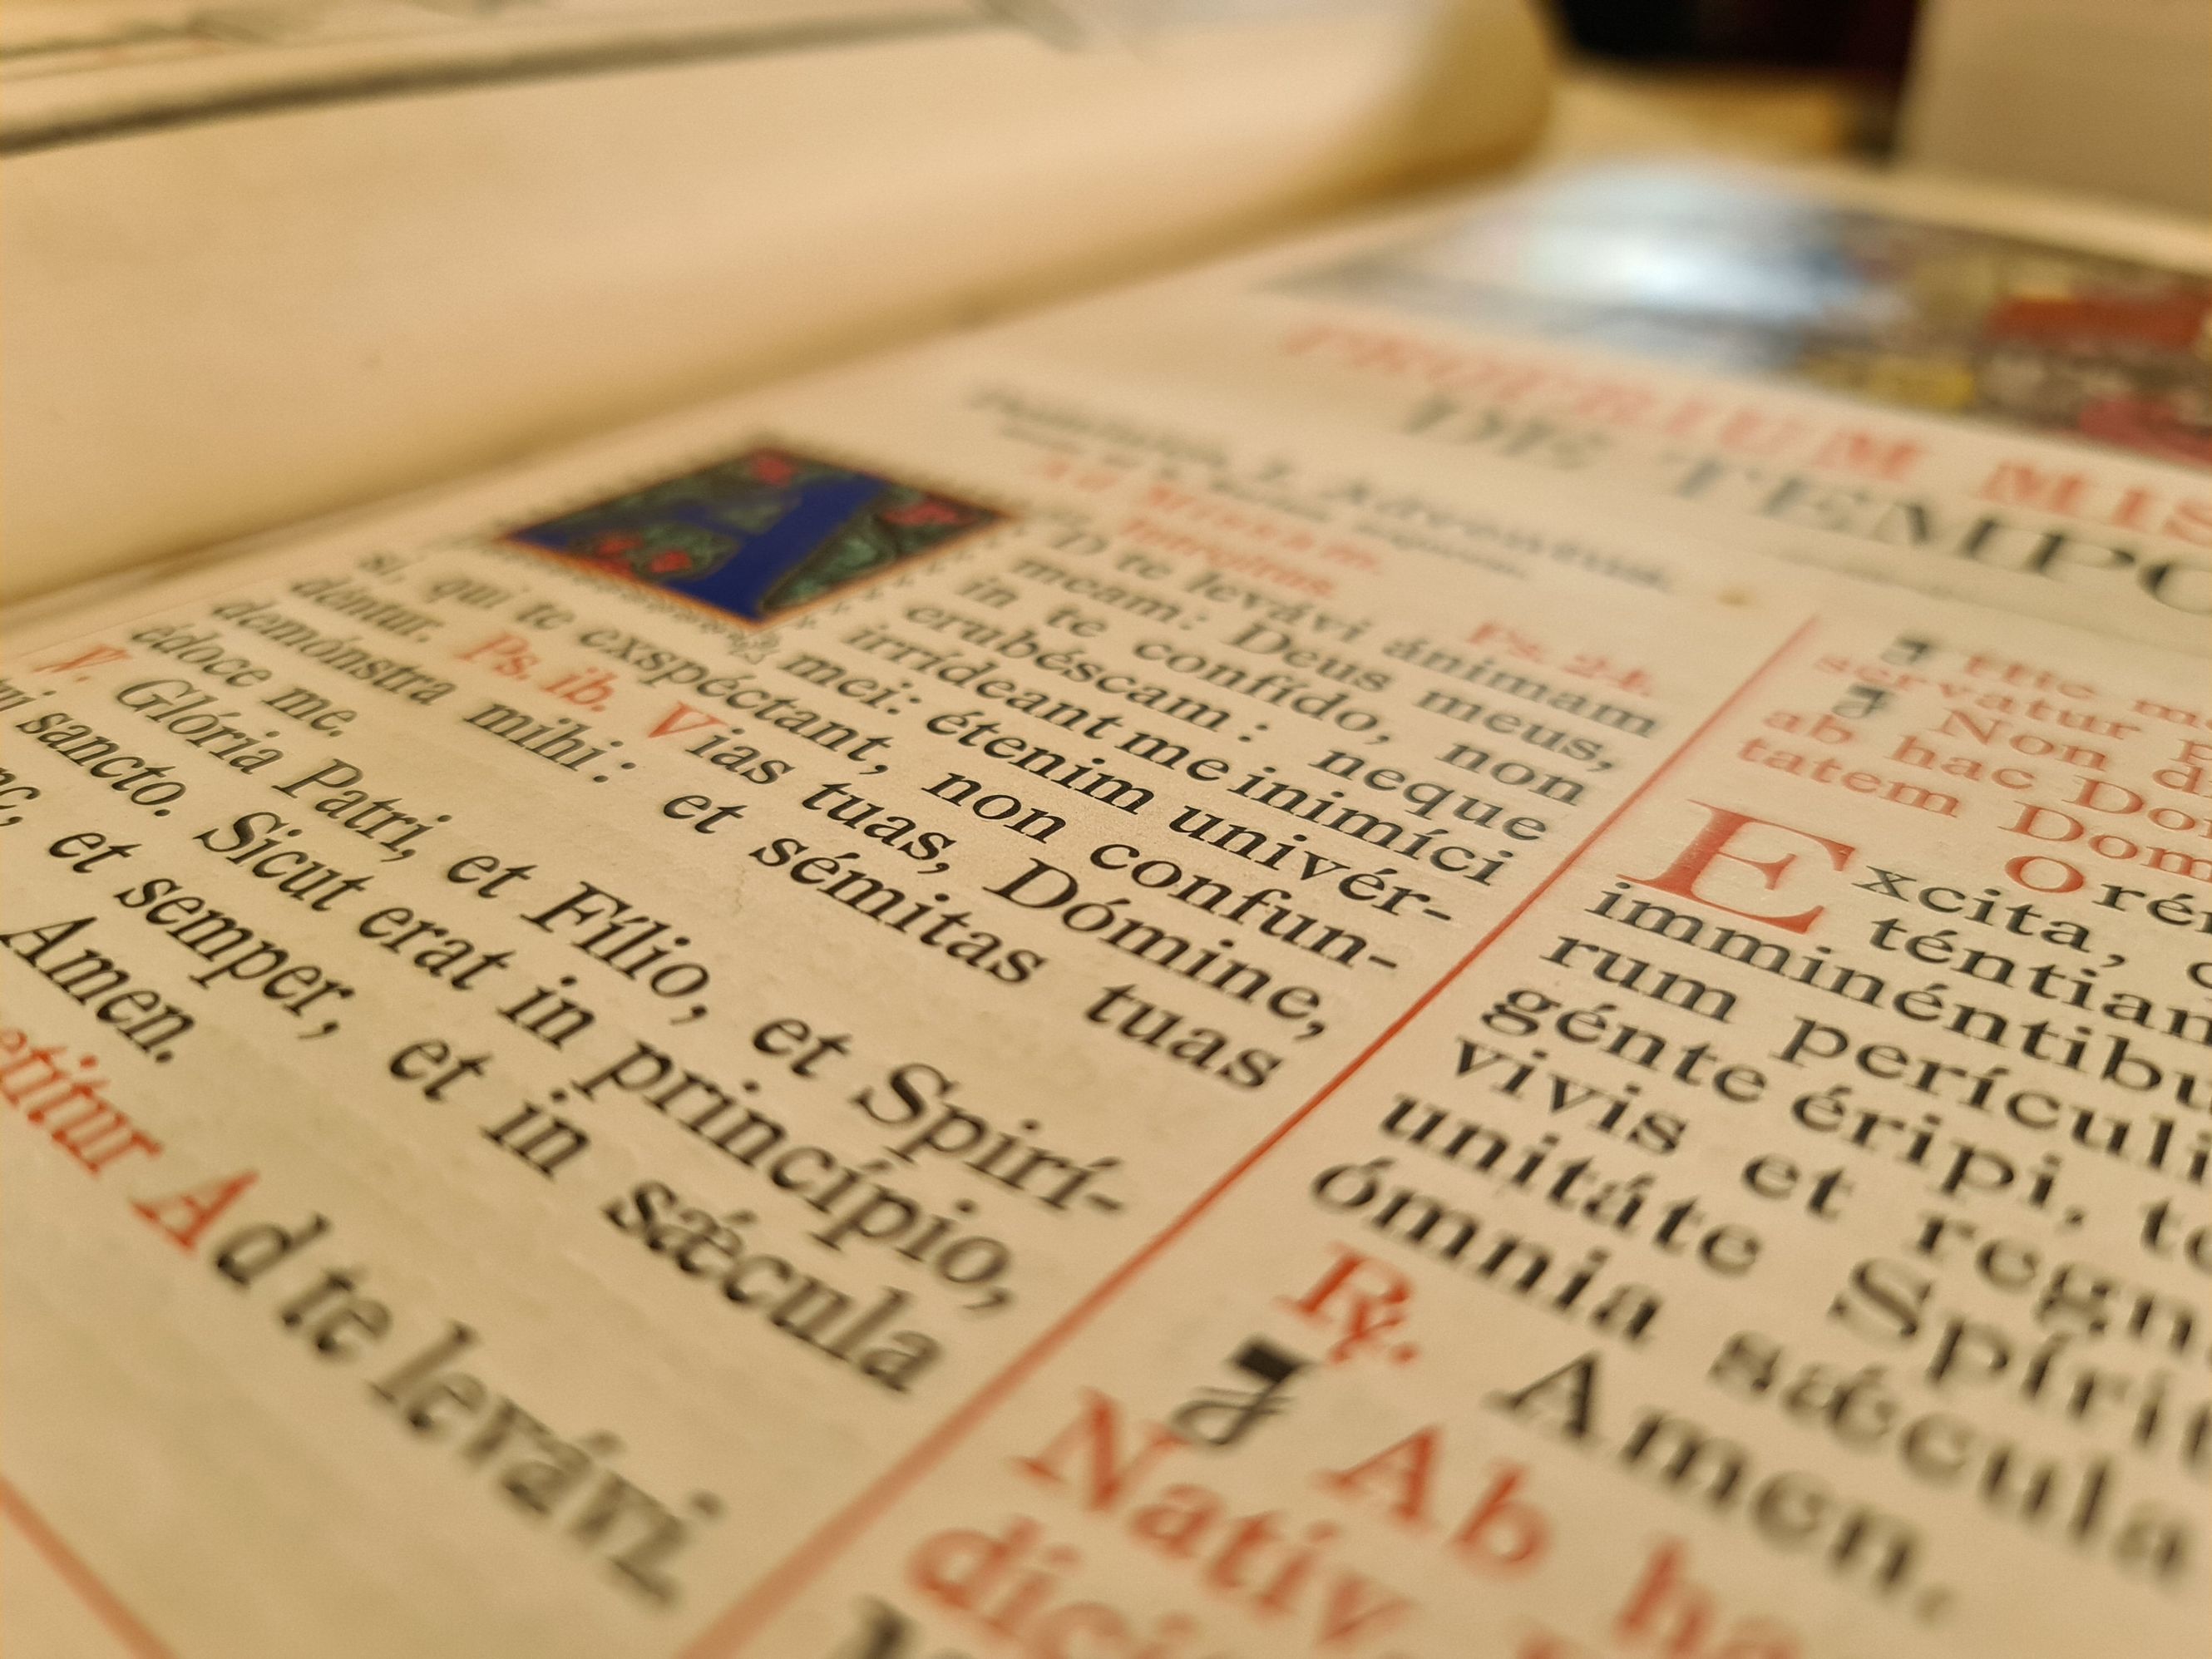 PROPRIUM MIS
DE TEMPO
Dominica I. Adventus.
Ad Missam.
Introitus. Ps. 24.
AD te levávi ánimam
meam: Deus meus,
in te confído, non
erubéscam: neque
irrídeant me inimíci
mei: étenim univér-
si, qui te exspéctant, non confun-
déntur. Ps. ib. Vias tuas, Dómine,
demónstra mihi: et sémitas tuas
édoce me.
℣. Glória Patri, et Fílio, et Spirí-
tui sancto. Sicut erat in princípio,
nc, et semper, et in sǽcula
Amen.
etitur Ad te levávi
servatur
Non d
ab hac Do
tatem Dom
Oré
Excita,
téntiam
imminéntibu
rum perículi
génte éripi, te
vivis et regn
unitáte Spírit
ómnia sǽcula
℟. Amen.
Ab ha
Nativ